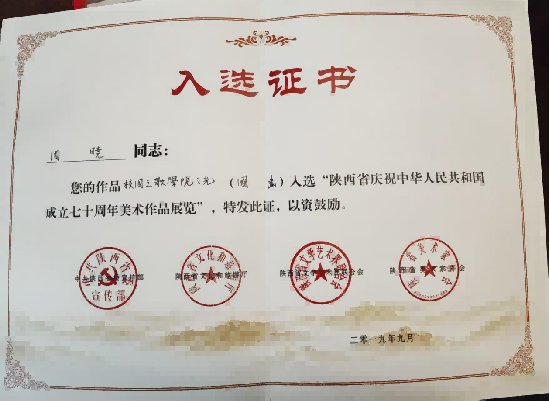 入选证书
周 晓 同志：
您的作品校园之歌學院之光（國 画）入选“陕西省庆祝中华人民共和国
成立七十周年美术作品展览”，特发此证，以资鼓励。
中共陕西省委宣传部 陕西省文化和旅游厅 陕西省文学艺术界联合会 陕西省美术家协会
宣传部
二零一九年九月